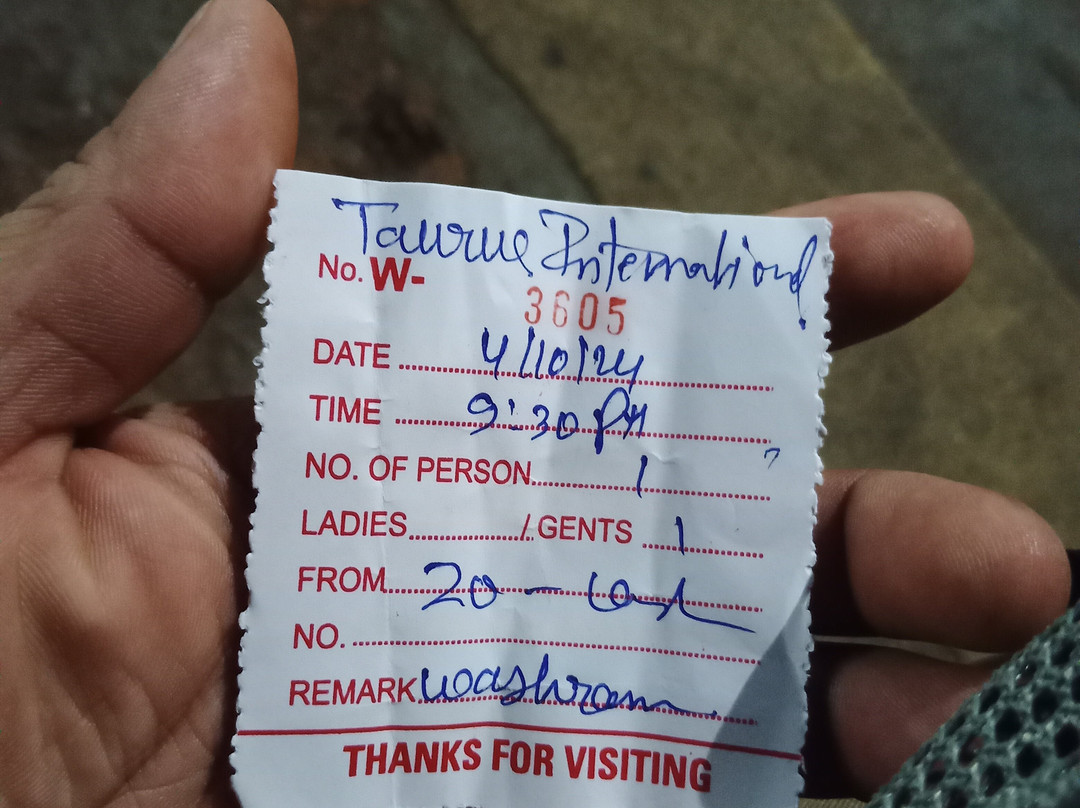 Taurus International
No. W-
3605
DATE ........ 4/10/24
TIME ........ 9:30 PM
NO. OF PERSON........ 1
LADIES......../. GENTS .... 1
FROM........ 20 - Cash
NO. ........
REMARK washroom
THANKS FOR VISITING